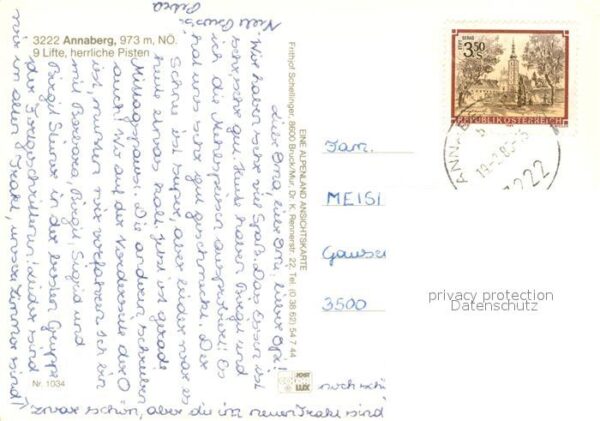 3222 Annaberg, 973 m, NÖ.
9 Lifte, herrliche Pisten
Nr. 1034
EINE ALPENLAND ANSICHTSKARTE
Frithof Schellinger, 8600 Bruck/Mur, Dr. K. Rennerstr. 22, Tel. (0 38 62) 54 7 44
POST
LUX
S 3.50
REPUBLIK ÖSTERREICH
ANNAB
19.2.85-15
3222
Fam.
MEISI
Gauser
3500
privacy protection
Datenschutz
Liebe Oma, lieber Opi!
Wir haben sehr viel Spaß. Das Essen ist
sehr, sehr gut. Heute haben Birgit und
ich die Mehlspeisen ausprobiert. Es
hat uns sehr gut geschmeckt. Der
Schnee ist super, aber leider war es
heute etwas kalt. Jetzt ist gerade
Mittagspause. Die anderen schreiben
auch! Wo auf der Vorderseite der O
ist, müssen wir vorfahren. Ich bin
mit Barbara, Birgit, Sigrid und
Birgit in der besten Gruppe
der Fortgeschrittenen! Leider sind
wir im alten Trakt, unsere Zimmer sind
zwar schön, aber die im neuen Trakt sind
noch schö
Petra